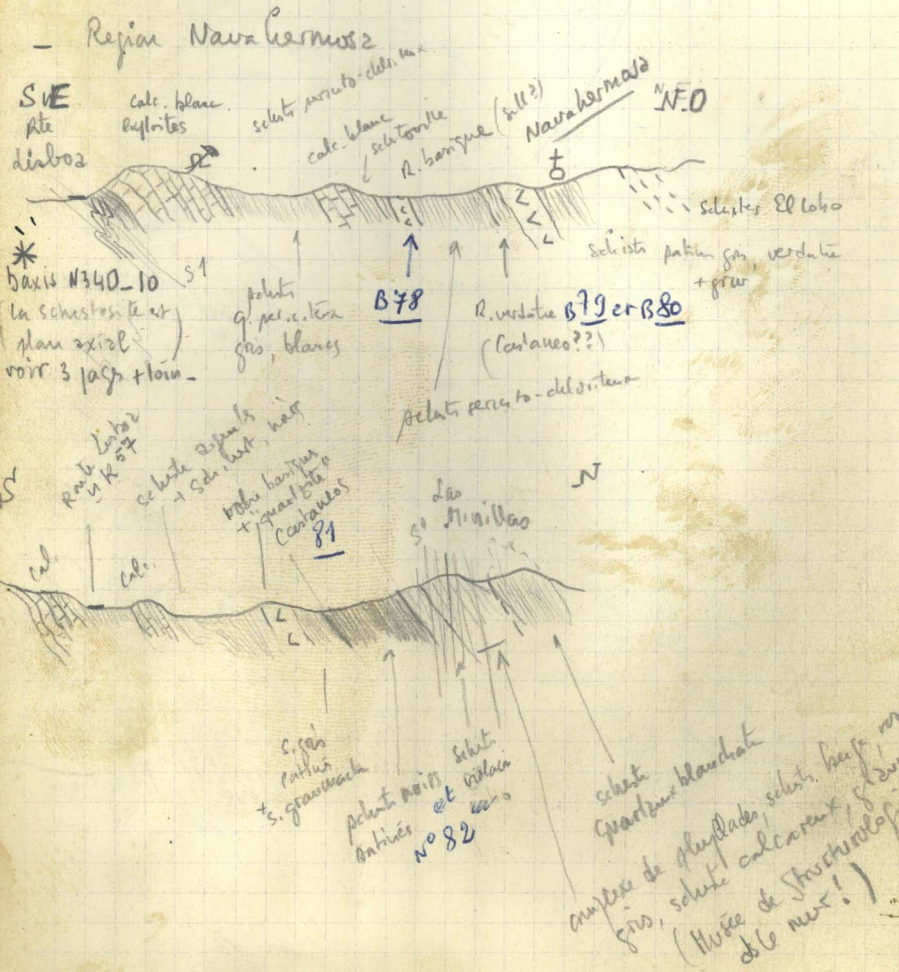 - Region Navahermosa
SE
Rte
Lisboa
calc. blanc
exploites
schists sericito-chloriteux
calc. blanc
R. basique (sill?)
Navahermosa
N.O
schistes El Lobo
schists patine gris, verdatre
+ grauw
S1
b axis N340-10
(la schistosite est
plan axial)
voir 3 pages + loin -
schists
gris, blancs
B78
R. verdatre B79 et B80
(Castaneo??)
schists sericito-chloriteux
Route Lisboa
K57
schiste
+ Sch. lust, noir
roche basique
+ "quartzite"
Castaneos
81
N
Las
Minillas
Cal.
Calc.
S. gris
patine
+ S. grauwacke
schists noirs
satinés
schists
violacé
et
N° 82
schists
quartzeux blanchatre
complexe de phyllades, schists beige
gris, schiste calcareux,
(Musée de Structurologie
ds le mur!)